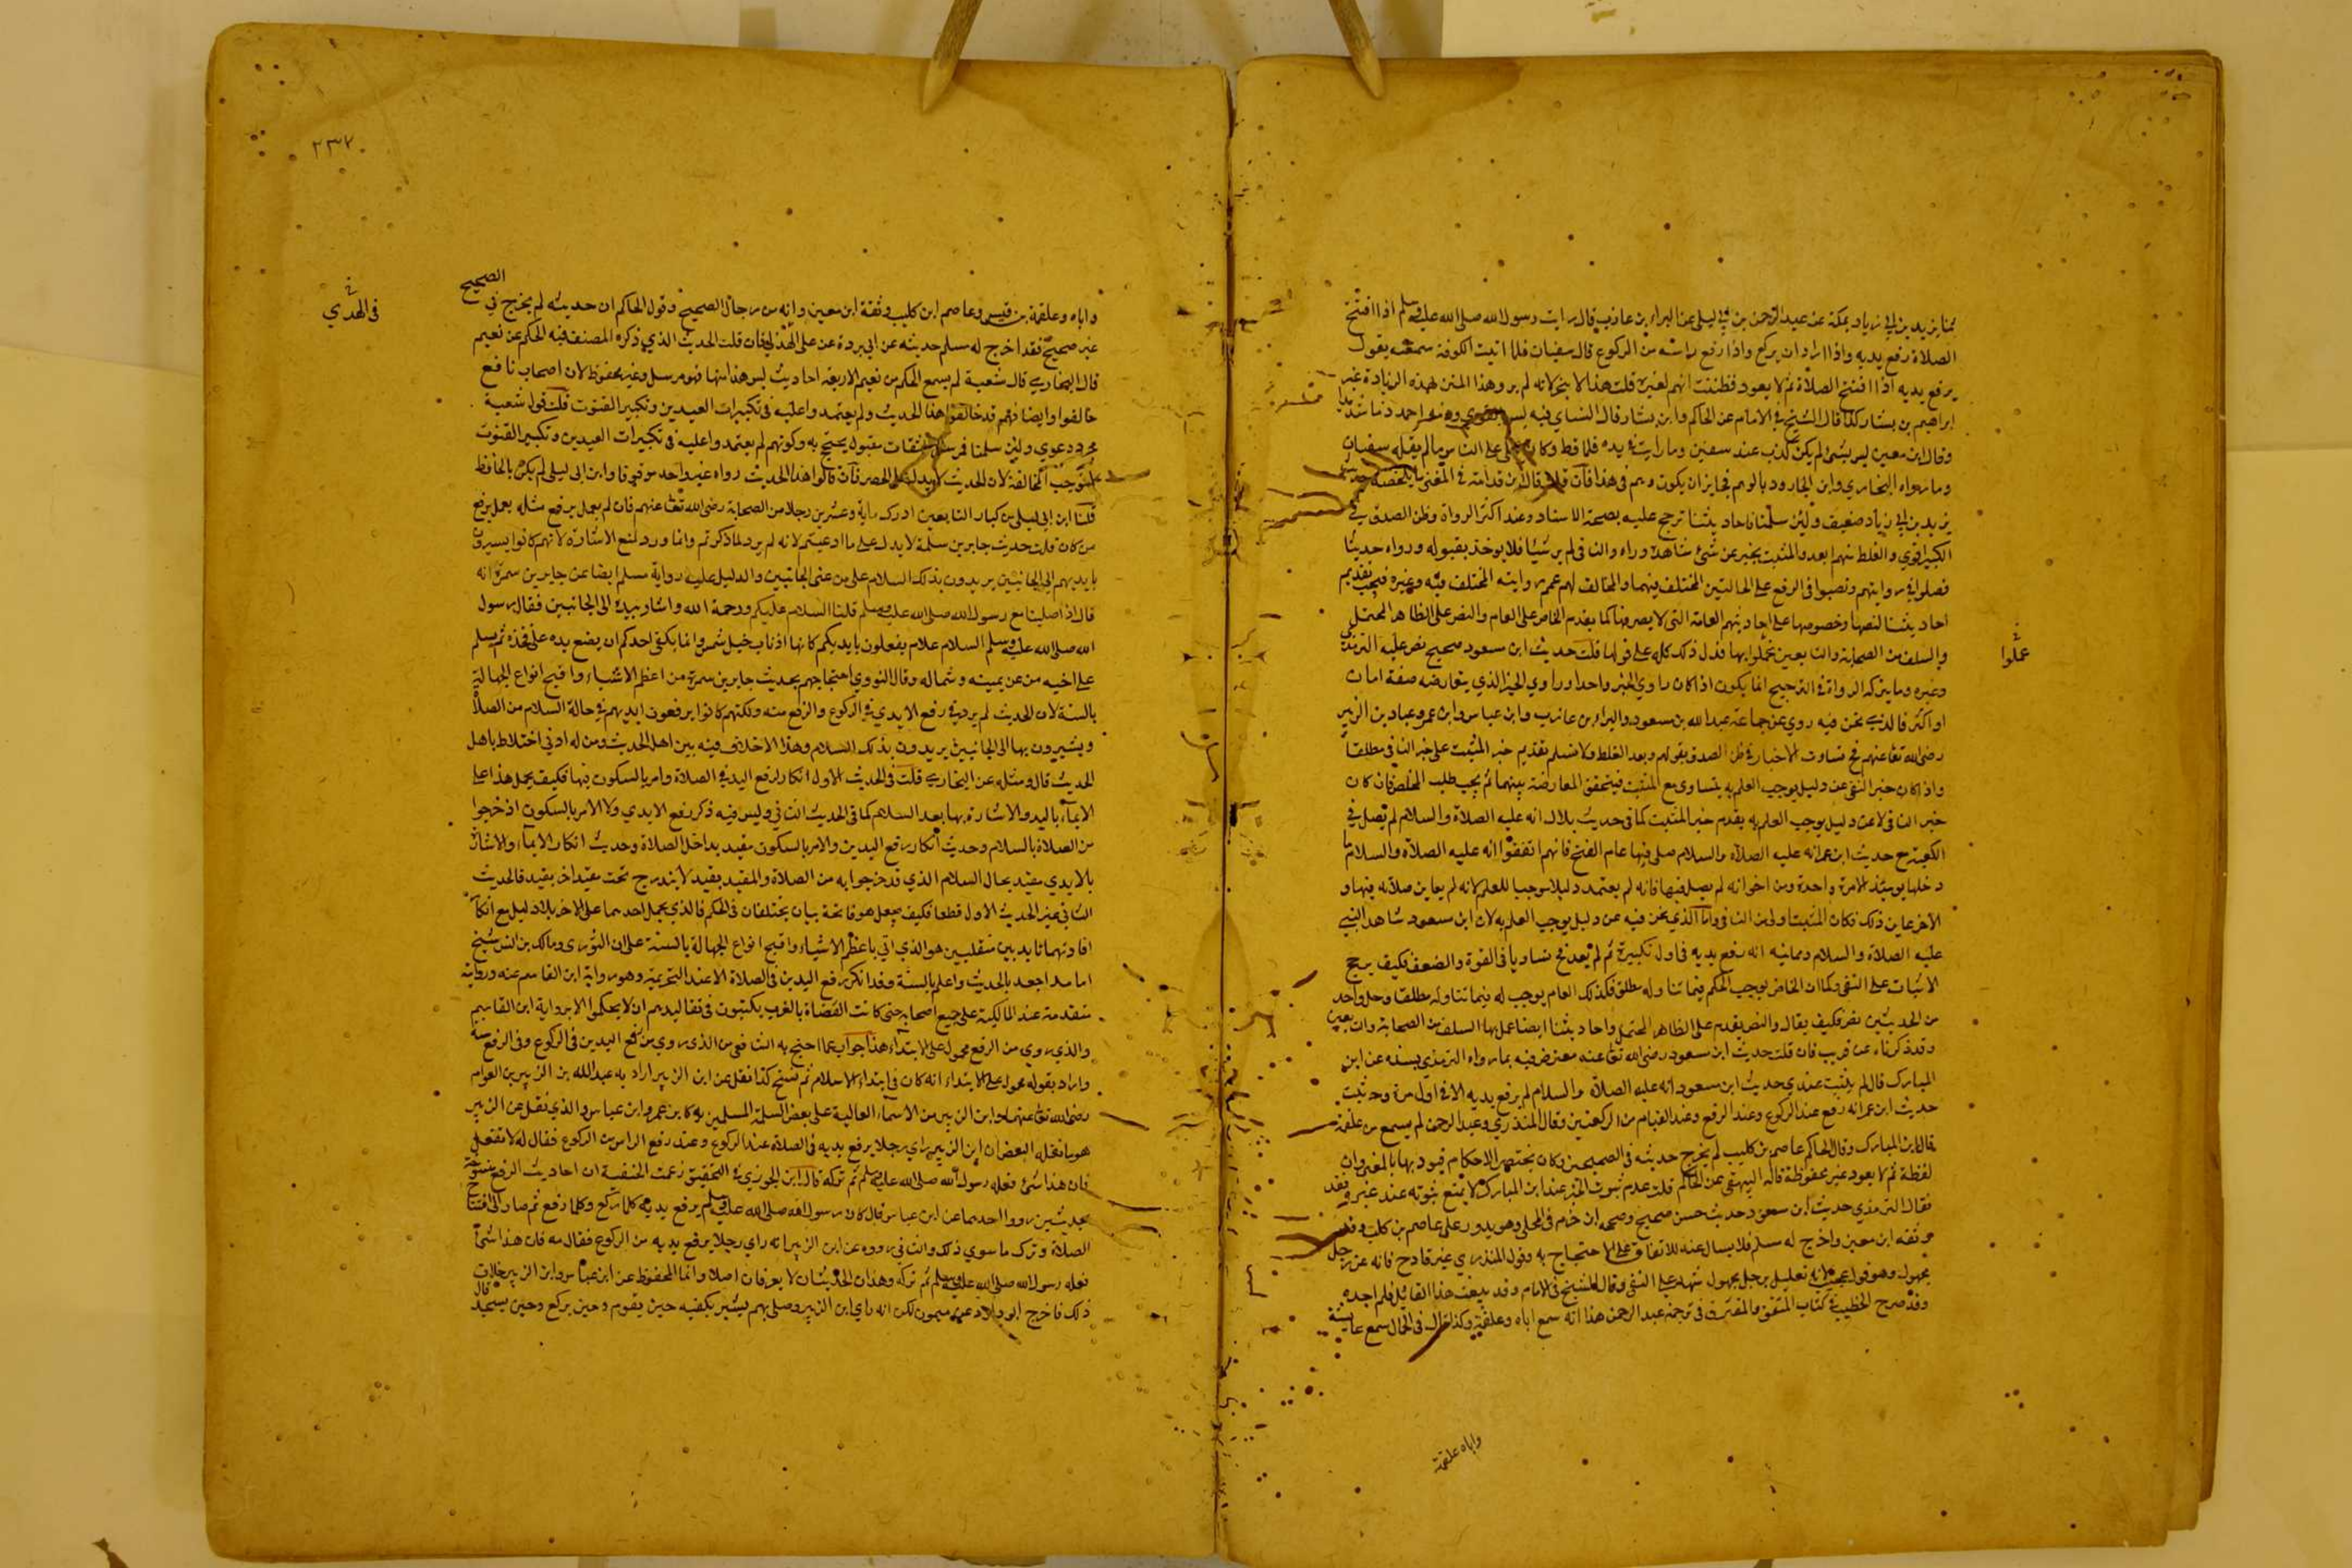 ثنا يزيد بن ابي زياد بمكة عن عبد الرحمن بن ابي ليلى عن البراء بن عازب قال رايت رسول الله صلى الله عليه وسلم اذا افتتح
الصلاة رفع يديه واذا اراد ان يركع واذا رفع راسه من الركوع قال سفيان فلما اتيت الكوفة سمعته يقول
يرفع يديه اذا افتتح الصلاة ثم لا يعود فظننت انهم لقنوه قلت هذا لانه لم يرو هذا المتن بهذه الزيادة غير
ابراهيم بن بشار كذا قال الشيخ في الامام عن الحاكم وابن بشار قال النساي فيه ليس بالقوي وذمه احمد ذما شديدا
وقال ابن معين ليس بشي لم يكن يكتب عند سفين وما رايت في يده قلما قط وكان يملي على الناس ما لم يقله سفيان
وما رواه البخاري وابن الجارود بالوهم فجايز ان يكون وهم في هذا فان قلت قال ابن قدامة في المغني ما ملخصه حديثهم
يزيد بن ابي زياد ضعيف ولئن سلمنا فاحاديثنا ترجح عليه بصحة الاسناد وعند اكثر الرواة وظن الصدق في
الكثير اقوي والغلط منهم ابعد والمثبت يخبر عن شئ شاهده ورآه والنافي لم ير شيئا فلا يوخذ بقبوله ورواه حديثنا
فصلوا في روايتهم ونصبوا في الرفع على الحالتين المختلف فيهما والمخالف لهم عمم روايته المختلف فيه وغيره فيجب تقديم
احاديثنا لنصها وخصوصها على احاديثهم العامة التي لا نص فيها كما يقدم الخاص على العام والنص على الظاهر المحتمل
والسلف من الصحابة والتابعين عملوا بها فدل ذلك كله على قولها قلت حديث ابن مسعود صحيح نص عليه الترمذي
عملوا
وغيره وما يترك الرواة في الترجيح انما يكون اذا كان راوي الخبر واحدا وراوي الخبر الذي يتعارضه صفة امان
او اكثر فالذي نحن فيه روي عن جماعة عبد الله بن مسعود والبراء بن عازب وابن عباس وابن عمر وعباد بن الزبير
رضي الله تعا عنهم فتساوت الاخبار في ظن الصدق بقولهم وبعد الغلط ولا نسلم تقديم خبر المثبت على خبر النافي مطلقا
واذا كان خبر النفي عن دليل يوجب العلم به يتساوى مع المثبت فيتحقق المعارضة بينهما ثم يجب طلب المخلص فان كان
خبر النافي لا عن دليل يوجب العلم به يقدم خبر المثبت كما في حديث بلال انه عليه الصلاة والسلام لم يصل في
الكعبة مع حديث ابن عمر انه عليه الصلاة والسلام صلى فيها عام الفتح فانهم اتفقوا انه عليه الصلاة والسلام ما
دخلها يومئذ الا مرة واحدة ومن اخبر انه لم يصل فيها فانه لم يعتمد دليلا موجبا للعلم لانه لم يعاين صلاته فيها و
الآخر عاين ذلك فكان المثبت اولى من النافي واما الذي نحن فيه عن دليل يوجب العلم به لان ابن مسعود شاهد النبي
عليه الصلاة والسلام وعاينه انه رفع يديه في اول تكبيرة ثم لم يعد فتساويا في القوة والضعف فكيف يرجح
الاثبات على النفي وكما ان الخاص يوجب الحكم فيما تناوله مطلق فكذلك العام يوجب له فيما تناوله مطلقا وحل واحد
من الحديثين نص فكيف يقال والنص يقدم على الظاهر المحتمل واحاديثنا ايضا عمل بها السلف من الصحابة والتابعين
وقد ذكرناه عن قريب فان قلت حديث ابن مسعود رضي الله تعا عنه معترض فيه بما رواه الترمذي بسنده عن ابن
المبارك قال لم يثبت عندي حديث ابن مسعود انه عليه الصلاة والسلام لم يرفع يديه الا في اول مرة وثبت
حديث ابن عمر انه رفع عند الركوع وعند الرفع وعند القيام من الركعتين وقال المنذري وعبد الرحمن لم يسمع من علقمة
قاله ابن المبارك وقال الحاكم عاصم بن كليب لم يخرج حديثه في الصحيحين وكان يختصر الاحكام فيود بها بالمعنى وان
لفظة ثم لا يعود غير محفوظة قاله البيهقي عن الحاكم قلت عدم ثبوت الخبر عند ابن المبارك لا يمنع ثبوته عند غيره فقد
فقال الترمذي حديث ابن مسعود حديث حسن صحيح وصححه ابن حزم في المحلى وهو يدور على عاصم بن كليب وقد
وثقه ابن معين واخرج له مسلم فلا يسال عنه للاتفاق على الاحتجاج به وقول المنذري غير قادح فانه عن رجل
مجهول وهو قول عجيب لانه تعليل برجل مجهول شهد على النفي وقال الشيخ في الامام وقد تتبعت هذا القائل فلم اجده
وقد صرح الخطيب في كتاب المتفق والمفترق في ترجمة عبد الرحمن هذا انه سمع اباه وعلقمة وكذا قال في الكمال سمع عايشة
واباه علقمة
٢٣٧
الصحيح
واباه وعلقمة بن قيس وعاصم ابن كليب وثقة ابن معين وانه من رجال الصحيح وقول الحاكم ان حديثه لم يخرج في
في الهدي
غير صحيح فقد اخرج له مسلم حديثه عن ابي بردة عن علي الهدي فان قلت الحديث الذي ذكره المصنف فيه الحكم عن نعيم
قال البخاري قال شعبة لم يسمع الحكم من نعيم الا ربعة احاديث ليس هذا منها فهو مرسل وغير محفوظ لان اصحاب نافع
خالفوا وايضا فهم قد خالفوا هذا الحديث ولم يعتمدوا عليه في تكبيرات العيدين وتكبير القنوت قلت قول شعبة
مجرد دعوي ولئن سلمنا فمرسل الثقات مقبول يحتج به وكونهم لم يعتمدوا عليه في تكبيرات العيدين وتكبير القنوت
لا يوجب المخالفة لان الحديث لا يدل على الحصر فان قالوا هذا الحديث رواه غير واحد موقوفا وابن ابي ليلى لم يكن بالحافظ
قلنا ابن ابي ليلى من كبار التابعين ادرك ماية وعشرين رجلا من الصحابة رضي الله تعا عنهم فان لم يعمل برفع مثله يعمل برفع
من كان قلت حديث جابر بن سلمة لا يدل على ما ادعيتم لانه لم يرد لما ذكرتم وانما ورد لمنع الاشارة لانهم كانوا يشيرون
بايديهم الى الجانبين يريدون بذلك السلام على من عن الجانبين والدليل عليه رواية مسلم ايضا عن جابر بن سمرة انه
قال اذا صلينا مع رسول الله صلى الله عليه وسلم قلنا السلام عليكم ورحمة الله واشار بيده الى الجانبين فقال رسول
الله صلى الله عليه وسلم السلام علام يفعلون بايديكم كانها اذناب خيل شمس وانما يكفي احدكم ان يضع يده على فخذه ثم يسلم
على اخيه من عن يمينه وشماله وقال النووي احتجاجهم بحديث جابر بن سمرة من اعظم الاشياء واقبح انواع الجهالة
بالسنة لان الحديث لم يرد في رفع الايدي في الركوع والرفع منه ولكنهم كانوا يرفعون ايديهم في حالة السلام من الصلاة
ويشيرون بها الى الجانبين يريدون بذلك السلام وهذا لا خلاف فيه بين اهل الحديث ومن له ادنى اختلاط باهل
الحديث قال ومثله عن البخاري قلت في الحديث الاول انكار لرفع اليد في الصلاة وامر بالسكون فيها فكيف يحمل هذا على
الايماء باليد والاشارة بها بعد السلام كما في الحديث الثاني وليس فيه ذكر رفع الايدي ولا الامر بالسكون اذ خرجوا
من الصلاة بالسلام وحديث انكار رفع اليدين والامر بالسكون مقيد بداخل الصلاة وحديث انكار الايماء والاشارة
بالايدي مقيد بحال السلام الذي قد خرجوا به من الصلاة والمقيد بقيد لا يندرج تحت مقيد اخر بقيد فالحديث
الثاني غير الحديث الاول قطعا فكيف يجعل هو فاتحة بيان يختلفان في الحكم فالذي يحمل احدهما على الاخر بلا دليل مع انكار
افادتهما تايد بين متقلبين هو الذي اتي باعظم الاشياء واقبح انواع الجهالة بالسنة على ان الثوري ومالك بن انس شيخ
اما مد اجعد بالحديث واعلم بالسنة وقد انكر رفع اليدين في الصلاة الا عند التحريمة وهو رواية ابن القاسم عنه ورواية
متقدمة عند المالكية على جميع اصحابه حتى كانت القضاة بالغرب يكتبون في تقاليدهم ان لا يحكموا الا برواية ابن القاسم
والذي روي من الرفع محمول على الابتداء هذا جواب عما احتج به الشافعي من الذي روي من رفع اليدين في الركوع وفي الرفع منه
واراد بقوله محمول على الابتداء انه كان في ابتداء الاسلام ثم نسخ كذا نقل عن ابن الزبير اراد به عبد الله بن الزبير بن العوام
رضي الله تعا عنهما وابن الزبير من الاسماء الغالبة على بعض المسلمين كابن عمر وابن عباس والذي نقل عن الزبير
هو ما نقله البعض ان ابن الزبير راي رجلا يرفع يديه في الصلاة عند الركوع وعند رفع الراس من الركوع فقال له لا تفعل
فان هذا شئ فعله رسول الله صلى الله عليه وسلم ثم تركه قال ابن الجوزي في التحقيق زعمت الحنفية ان احاديث الرفع منسوخة
بحديثين رووا احدهما عن ابن عباس قال كان رسول الله صلى الله عليه وسلم يرفع يديه كلما ركع وكلما رفع ثم صار الى افتتاح
الصلاة وترك ما سوي ذلك والثاني رووه عن ابن الزبير انه راي رجلا يرفع يديه من الركوع فقال مه فان هذا شئ
فعله رسول الله صلى الله عليه وسلم ثم تركه وهذان الحديثان لا يعرفان اصلا وانما المحفوظ عن ابن عباس وابن الزبير خلاف
ذلك فاخرج ابو داود عن ميمون المكي انه راي ابن الزبير وصلى بهم يشير بكفيه حين يقوم وحين يركع وحين يسجد قال